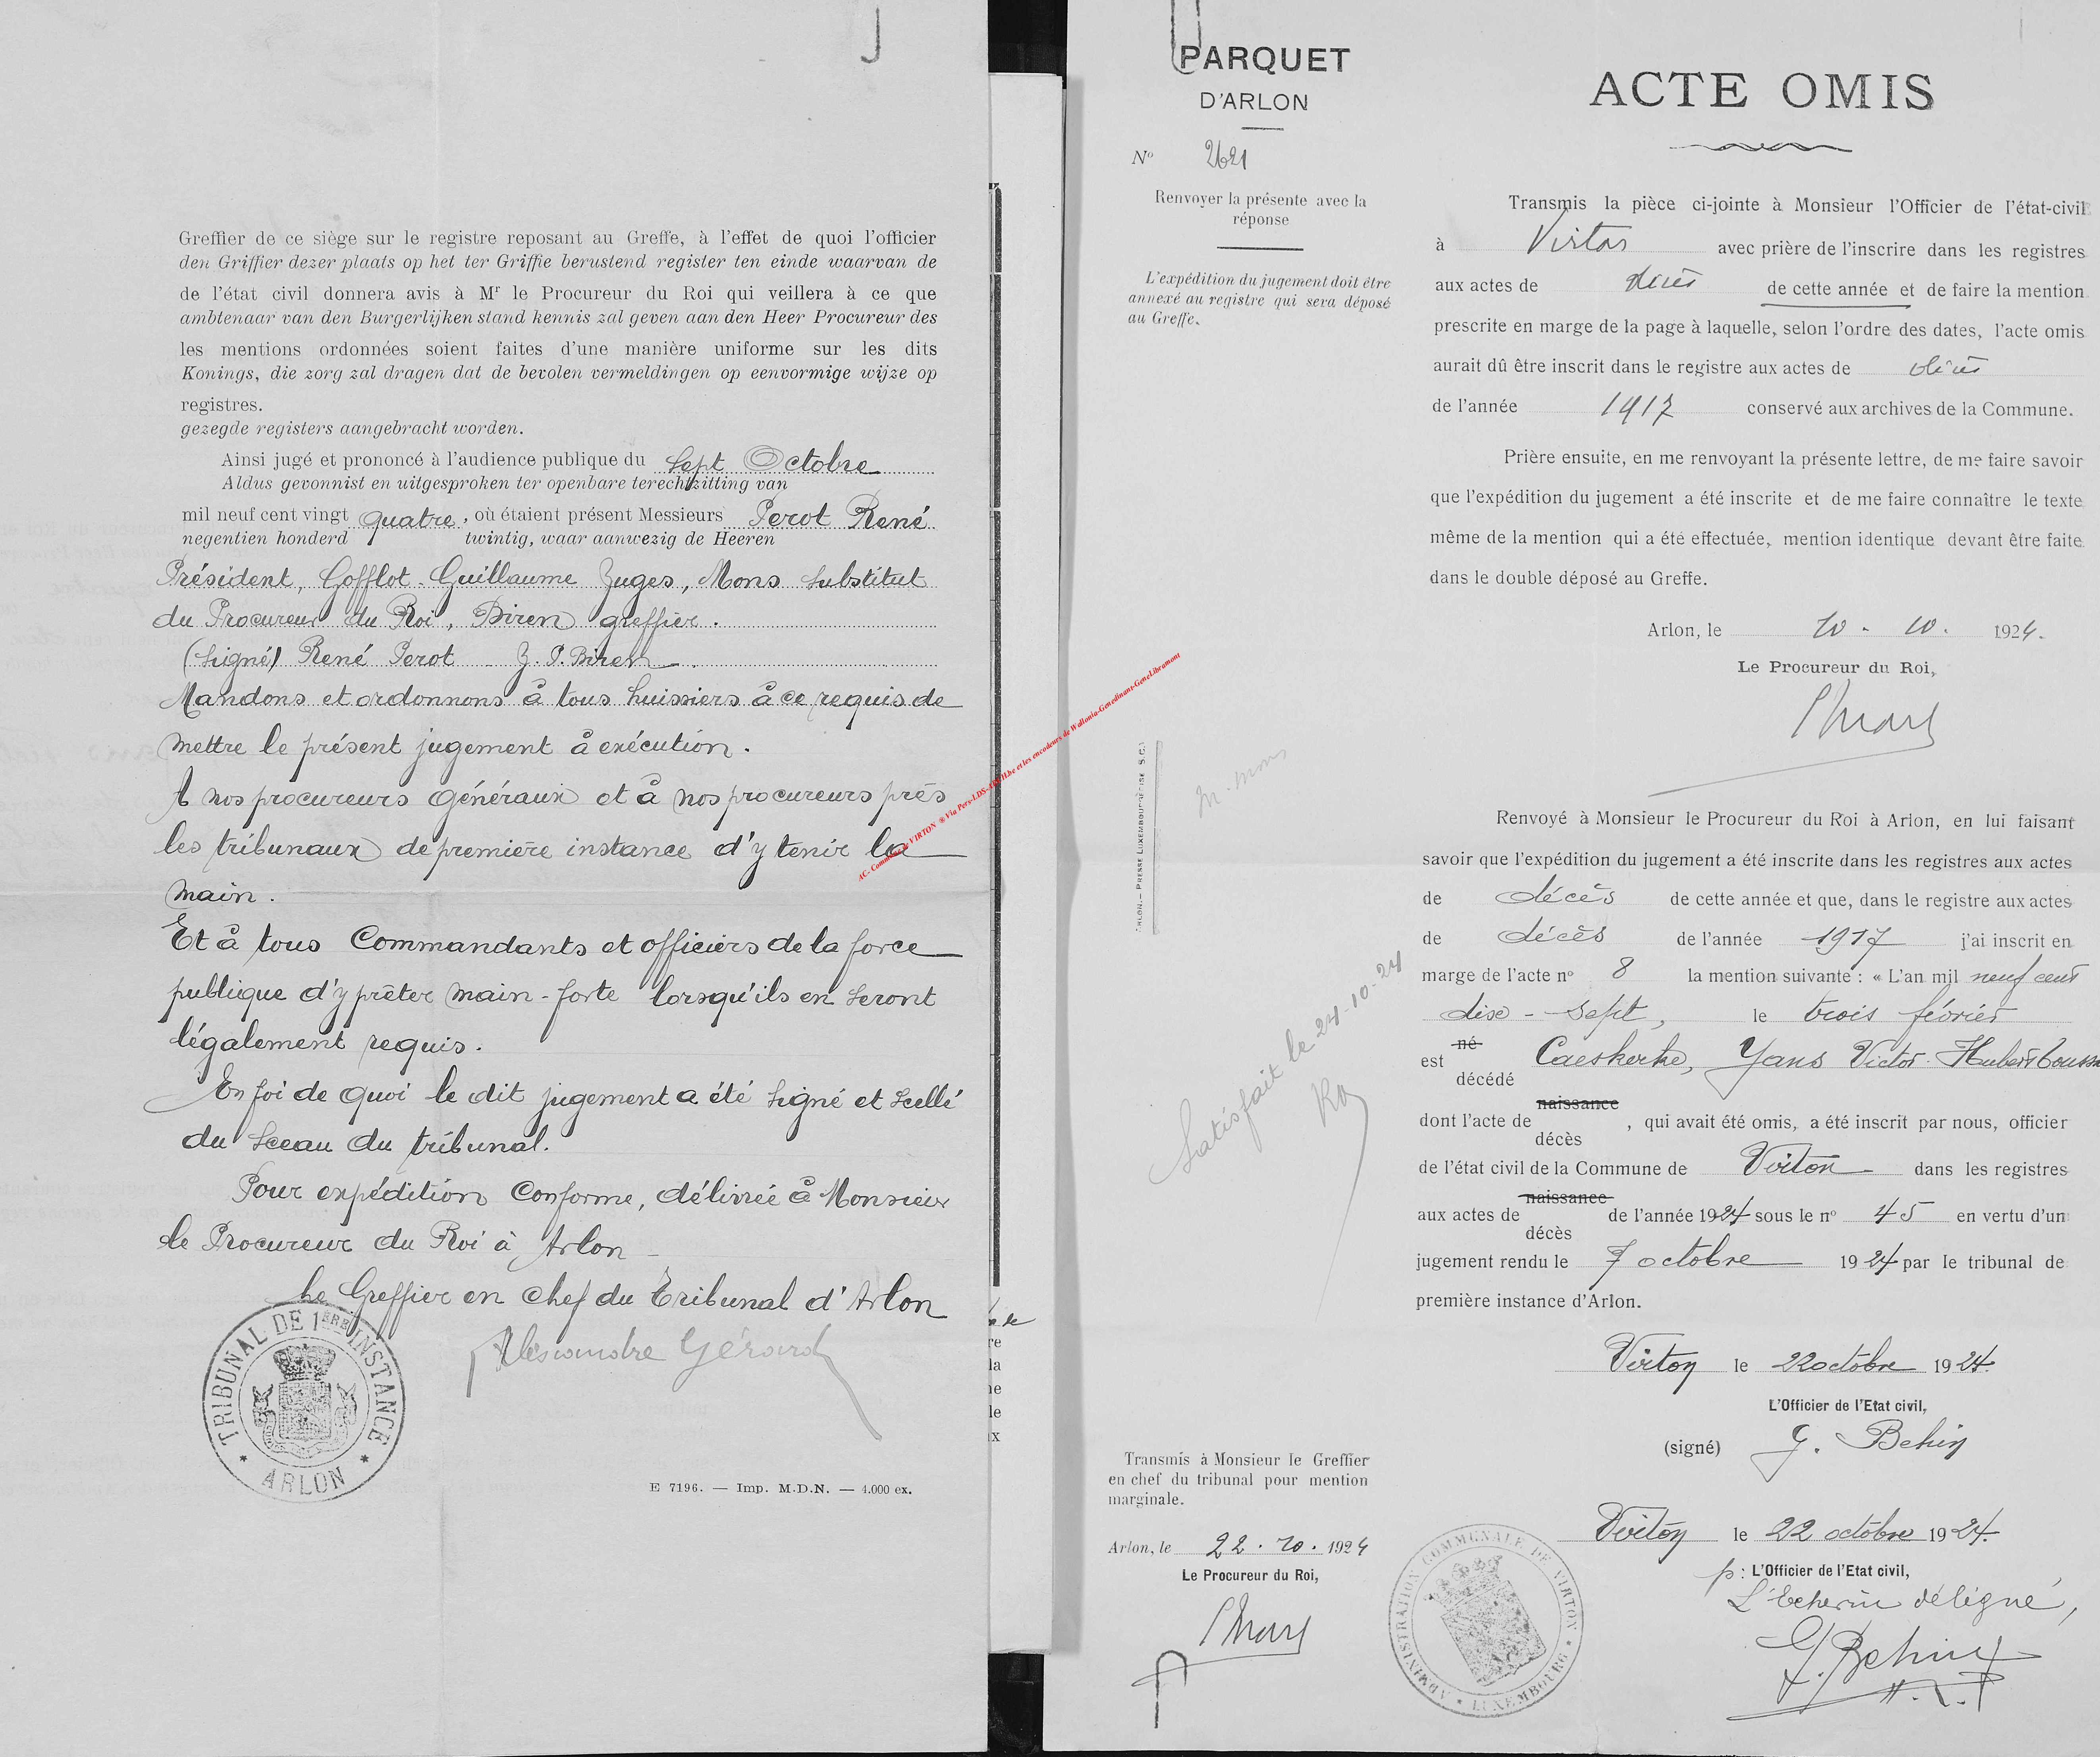 Greffier de ce siège sur le registre reposant au Greffe, à l'effet de quoi l'officier
den Griffier dezer plaats op het ter Griffie berustend register ten einde waarvan de
de l'état civil donnera avis à Mr le Procureur du Roi qui veillera à ce que
ambtenaar van den Burgerlijken stand kennis zal geven aan den Heer Procureur des
les mentions ordonnées soient faites d'une manière uniforme sur les dits
Konings, die zorg zal dragen dat de bevolen vermeldingen op eenvormige wijze op
registres.
gezegde registers aangebracht worden.
Ainsi jugé et prononcé à l'audience publique du sept Octobre
Aldus gevonnist en uitgesproken ter openbare terechtzitting van
mil neuf cent vingt quatre, où étaient présent Messieurs Perot René
negentien honderd twintig, waar aanwezig de Heeren
Président, Gofflot-Guillaume Juges, Mons Substitut
du Procureur du Roi, Biren greffier.
(Signé) René Perot - J. P. Biren.
Mandons et ordonnons à tous huissiers à ce requis de
mettre le présent jugement à exécution.
A nos procureurs Généraux et à nos procureurs près
les tribunaux de première instance d'y tenir la
main.
Et à tous Commandants et officiers de la force
publique d'y prêter main-forte lorsqu'ils en seront
légalement requis.
En foi de quoi le dit jugement a été signé et scellé
du Sceau du tribunal.
Pour expédition Conforme, délivrée à Monsieur
le Procureur du Roi à Arlon -
Le Greffier en chef du Tribunal d'Arlon
Alexandre Gérard
TRIBUNAL DE 1ERE INSTANCE * ARLON *
E 7196. — Imp. M.D.N. — 4.000 ex.
PARQUET
D'ARLON
No 2621
Renvoyer la présente avec la
réponse
L'expédition du jugement doit être
annexé au registre qui sera déposé
au Greffe.
ARLON. — PRESSE LUXEMBOURGEOISE S.C.
M. Mons
Satisfait le 24-10-24
Transmis à Monsieur le Greffier
en chef du tribunal pour mention
marginale.
Arlon, le 22. 10. 1924
Le Procureur du Roi,
ACTE OMIS
Transmis la pièce ci-jointe à Monsieur l'Officier de l'état-civil
à Virton avec prière de l'inscrire dans les registres
aux actes de décès de cette année et de faire la mention
prescrite en marge de la page à laquelle, selon l'ordre des dates, l'acte omis
aurait dû être inscrit dans le registre aux actes de décès
de l'année 1917 conservé aux archives de la Commune.
Prière ensuite, en me renvoyant la présente lettre, de me faire savoir
que l'expédition du jugement a été inscrite et de me faire connaître le texte
même de la mention qui a été effectuée, mention identique devant être faite
dans le double déposé au Greffe.
Arlon, le 10 - 10. 1924.
Le Procureur du Roi,
Renvoyé à Monsieur le Procureur du Roi à Arlon, en lui faisant
savoir que l'expédition du jugement a été inscrite dans les registres aux actes
de décès de cette année et que, dans le registre aux actes
de décès de l'année 1917 j'ai inscrit en
marge de l'acte no 8 la mention suivante : « L'an mil neuf cent
dix-sept, le trois février
est né décédé Caeskerke, Yans Victor Hubert
dont l'acte de naissance décès, qui avait été omis, a été inscrit par nous, officier
de l'état civil de la Commune de Virton dans les registres
aux actes de naissance décès de l'année 1924 sous le no 45 en vertu d'un
jugement rendu le 7 octobre 1924 par le tribunal de
première instance d'Arlon.
Virton le 22 octobre 1924.
L'Officier de l'Etat civil,
(signé) G. Behin
Virton le 22 octobre 1924.
p: L'Officier de l'Etat civil,
L'Echevin délégué,
G. Behin
ADMINISTRATION COMMUNALE DE VIRTON * LUXEMBOURG *
AC- Commune de VIRTON ® Via Pers-LDS- et les encodeurs de Wallonia-Genedinant-GeneLibramont